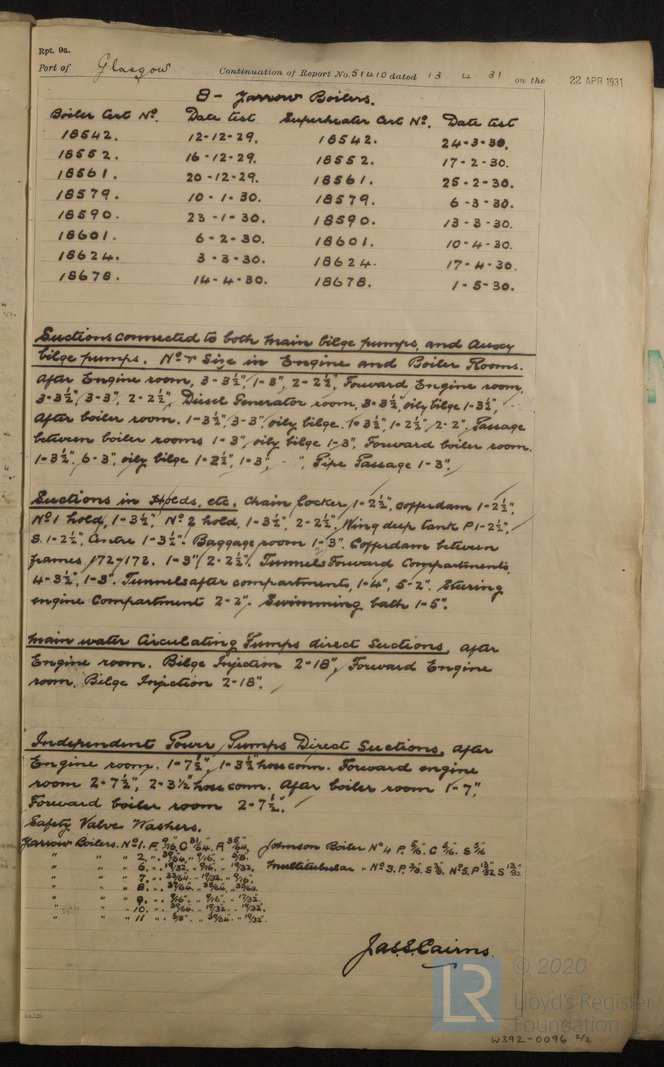 Rpt. 9a.
Port of Glasgow Continuation of Report No. 51410 dated 13 4 31 on the 22 APR 1931
8 - Yarrow Boilers.
Boiler Cert No. Date test Superheater Cert No. Date test
18542. 12-12-29. 18542. 24-3-30.
18552. 16-12-29. 18552. 17-2-30.
18561. 20-12-29. 18561. 25-2-30.
18579. 10-1-30. 18579. 6-3-30.
18590. 23-1-30. 18590. 13-3-30.
18601. 6-2-30. 18601. 10-4-30.
18624. 3-3-30. 18624. 17-4-30.
18678. 14-4-30. 18678. 1-5-30.
Suctions connected to both main bilge pumps, and Auxy
bilge pumps. No. & Size in Engine and Boiler Rooms.
After Engine room, 3-3½", 1-3", 2-2½", Forward Engine room,
3-3½", 3-3", 2-2½", Diesel Generator room, 3-3½", oily bilge 1-3½",
After boiler room. 1-3½", 3-3", oily bilge. 1-3½", 1-2½", 2-2". Passage
between boiler rooms 1-3", oily bilge 1-3". Forward boiler room.
1-3½", 6-3", oily bilge 1-2½", 1-3", Pipe Passage 1-3".
Suctions in Holds, etc. Chain locker, 1-2½", cofferdam 1-2½",
No 1 hold, 1-3½", No 2 hold, 1-3½", 2-2½", Wing deep tank P 1-2½",
S. 1-2½", Centre 1-3½". Baggage room 1-3". Cofferdam between
frames 172-172. 1-3", 2-2½". Tunnels Forward Compartments,
4-3½", 1-3". Tunnels after compartments, 1-4", 5-2". Steering
engine Compartment 2-2". Swimming bath 1-5".
Main water Circulating Pumps direct Suctions, After
Engine room. Bilge Injection 2-18", Forward Engine
room. Bilge Injection 2-18".
Independent Power Pumps Direct Suctions, After
Engine room. 1-7½", 1-3½" hose conn. Forward engine
room 2-7½", 2-3½" hose conn. After boiler room 1-7",
Forward boiler room 2-7½".
Safety Valve Washers.
Yarrow Boilers. No 1. P. 9/16". C 31/64. Johnson Boiler No 4 P. 5/16 C 5/16. S 5/16
" " " 2. " 39/64. " 9/16". " 5/8. Multitubular " No 3. P. 3/8. S 3/8. No 5. P 13/32 S 13/32
" " " 6. " 19/32. " 9/16. " 19/32.
" " " 7. " " 19/32. " 9/16.
" " " 8. " 39/64. " 39/64. " 39/64.
" " " 9. " 9/16. " 9/16. " 19/32.
" " " 10. " 39/64. " 19/32. " 19/32.
" " " 11 " 5/8. " 39/64. " 19/32.
Jas. S. Cairns.
© 2020
LR
Lloyd's Register
Foundation
W392-0096 2/2